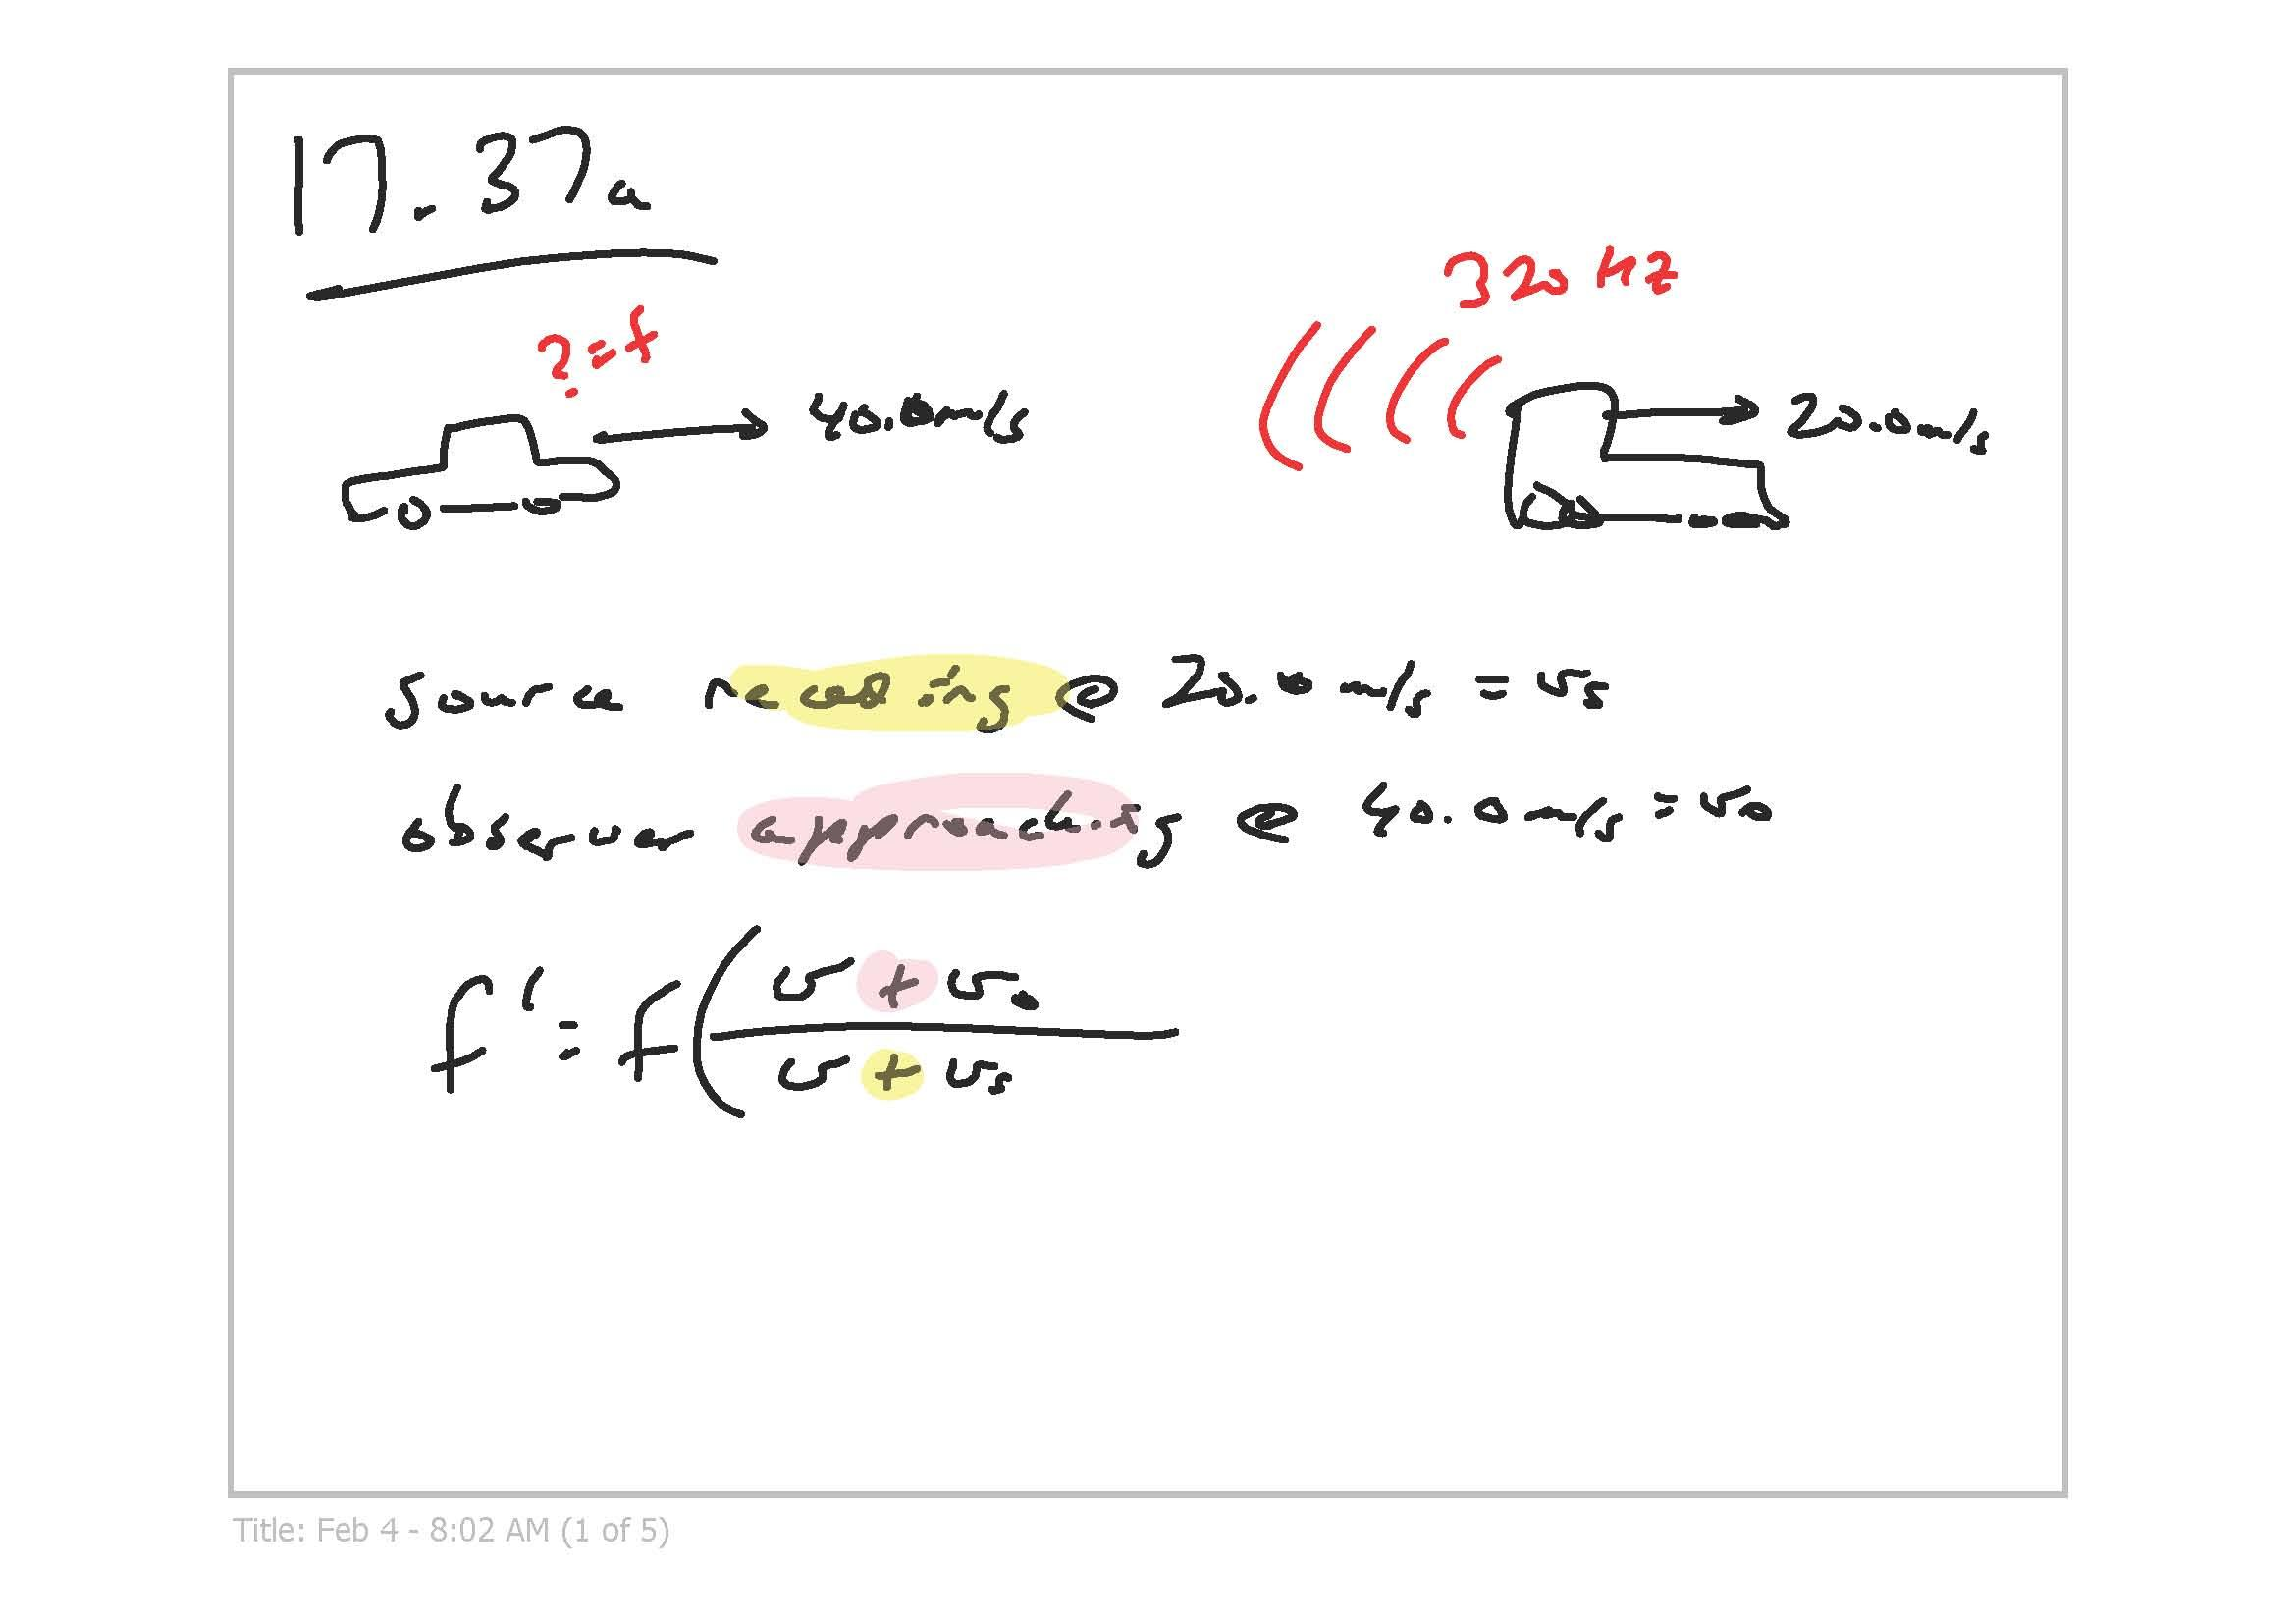 17.37a
320 Hz
?=f
40.0m/s
20.0m/s
source receding @ 20.0 m/s = vs
observer approaching @ 40.0m/s = vo
f' = f(v + vo
v + vs
Title: Feb 4 - 8:02 AM (1 of 5)